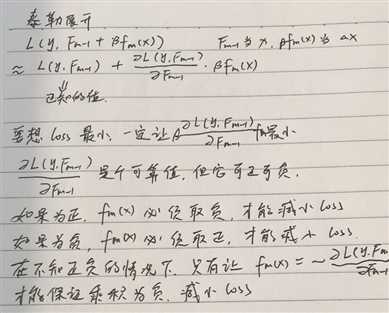 泰勒展开
L(y, Fm-1 + βfm(x)) Fm-1 为 x, βfm(x) 为 Δx
≈ L(y, Fm-1) + ∂L(y, Fm-1)/∂Fm-1 · βfm(x)
⇓
已知的值.
要想 loss 最小, 一定让 β ∂L(y, Fm-1)/∂Fm-1 fm最小
∂L(y, Fm-1)/∂Fm-1 是个可算值, 但它可正可负.
如果为正, fm(x) 必须取负, 才能减小 loss
如果为负, fm(x) 必须取正, 才能减小 loss.
在不知正负的情况下, 只有让 fm(x) = - ∂L(y, Fm
才能保证乘积为负, 减小 loss